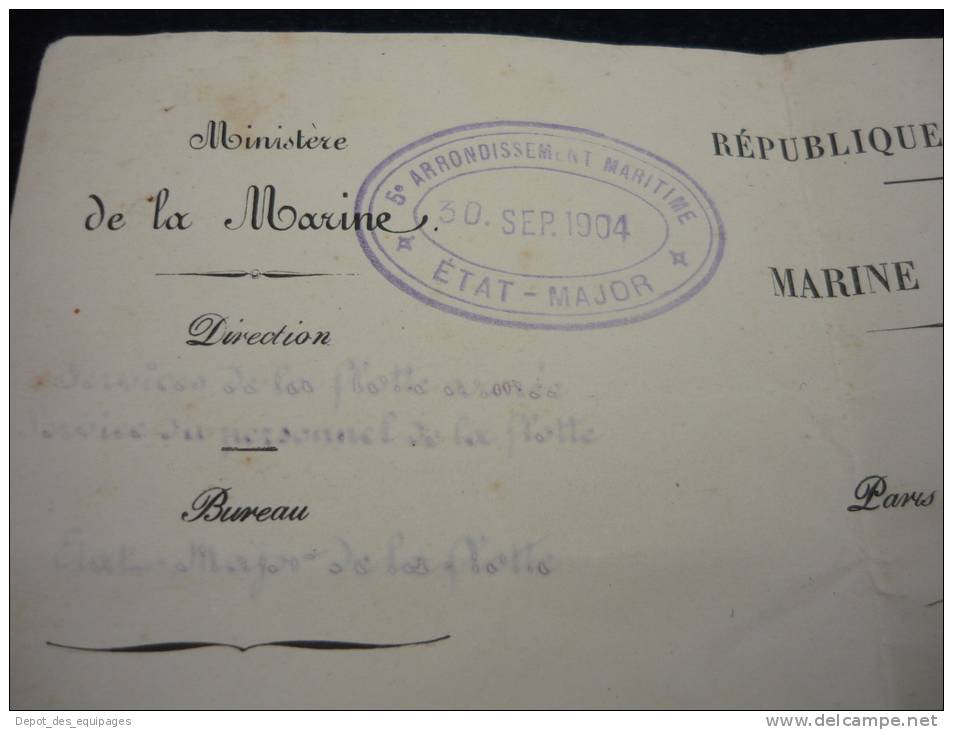 Ministère
de la Marine.
5e ARRONDISSEMENT MARITIME
30. SEP. 1904
ÉTAT-MAJOR
RÉPUBLIQUE
MARINE
Direction
Services de la flotte armée
Service du personnel de la flotte
Bureau
État-Major de la flotte
Paris
Depot_des_equipages
www.delcampe.net